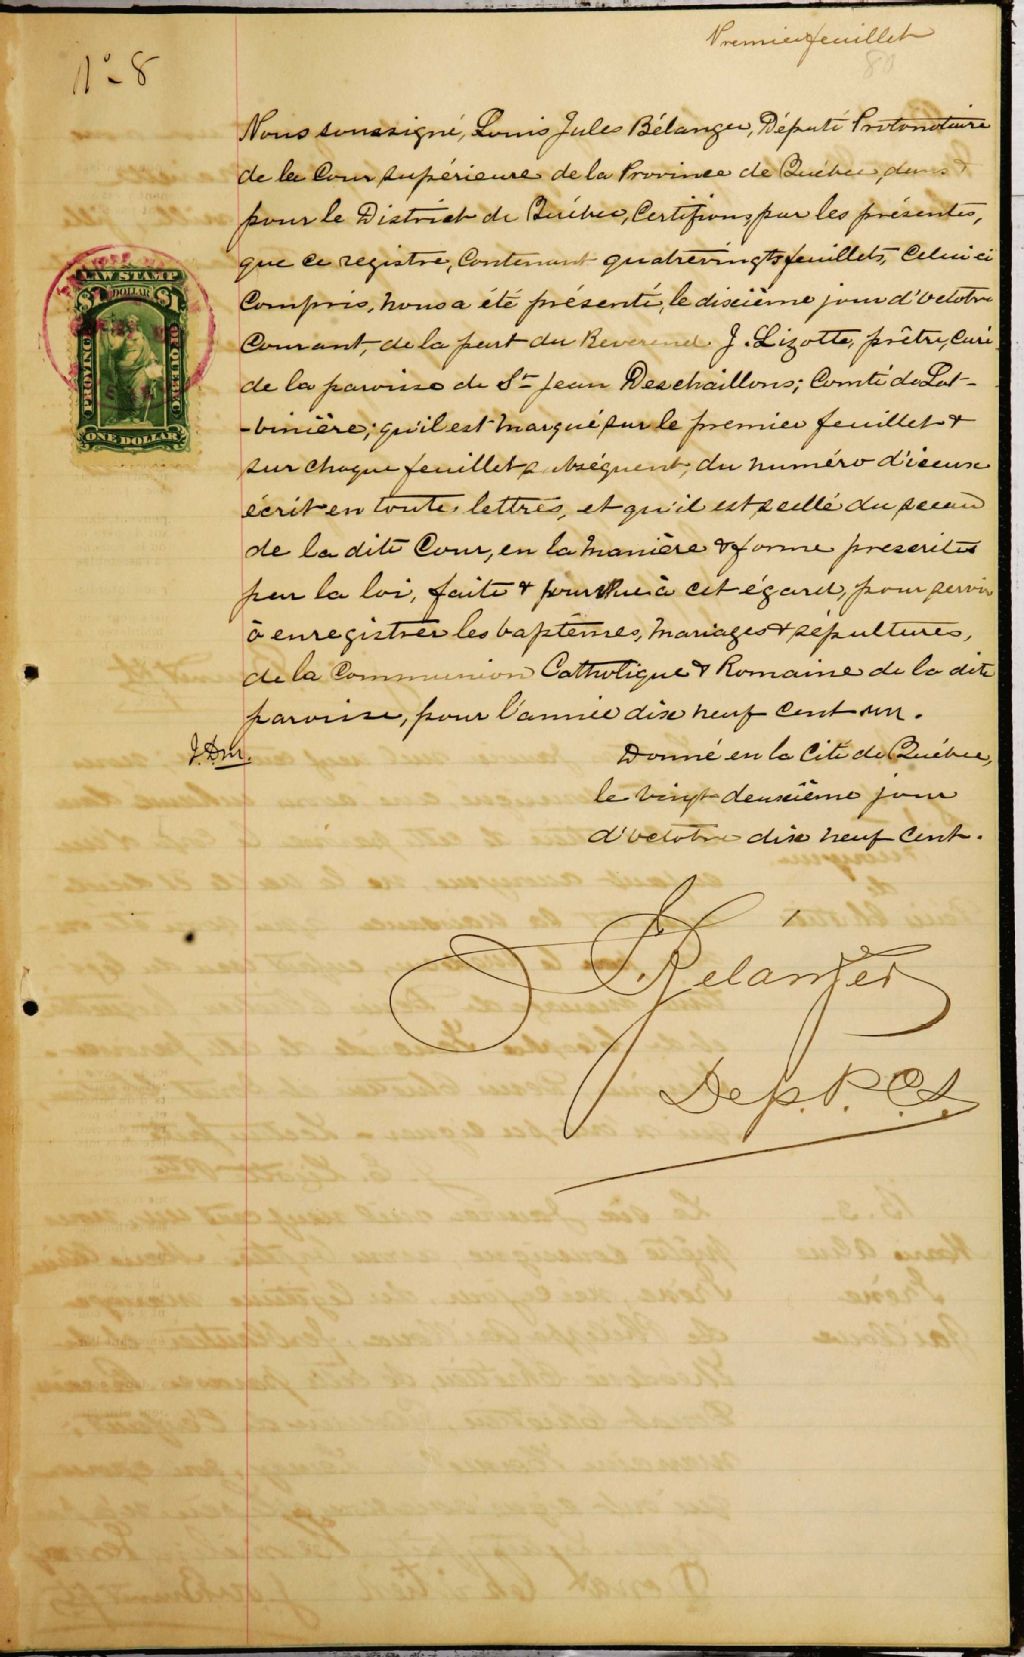 Premier feuillet
80
No- 8
Nous soussigné, Louis Jules Bélanger, Député Protonotaire
de la Cour supérieure de la Province de Québec, dans &
pour le District de Québec, Certifions par les présentes,
que ce registre, Contenant quatrevingts feuillets, Celui ci
Compris, nous a été présenté, le dixième jour d'octobre
Courant, de la part du Reverend J. Lizotte, prêtre, Curé
de la paroisse de St Jean Deschaillons; Comté de Lot-
-binière; qu'il est marqué sur le premier feuillet &
sur chaque feuillet subséquent, du numéro d'iceux
écrit en toutes lettres, et qu'il est scellé du sceau
de la dite Cour, en la manière & forme prescrites
par la loi, faite & pourvue à cet égard, pour servir
à enregistrer les baptêmes, mariages & sépultures,
de la Communion Catholique & Romaine de la dite
paroisse, pour l'année dix neuf cent un.
J.Dm.
Donné en la Cité de Québec,
le vingt deuxième jour
d'octobre dix neuf cent.
Bélanger
Dep. P. C. S.
LAW STAMP
$1 DOLLAR $1
PROVINCE
OF QUEBEC
ONE DOLLAR